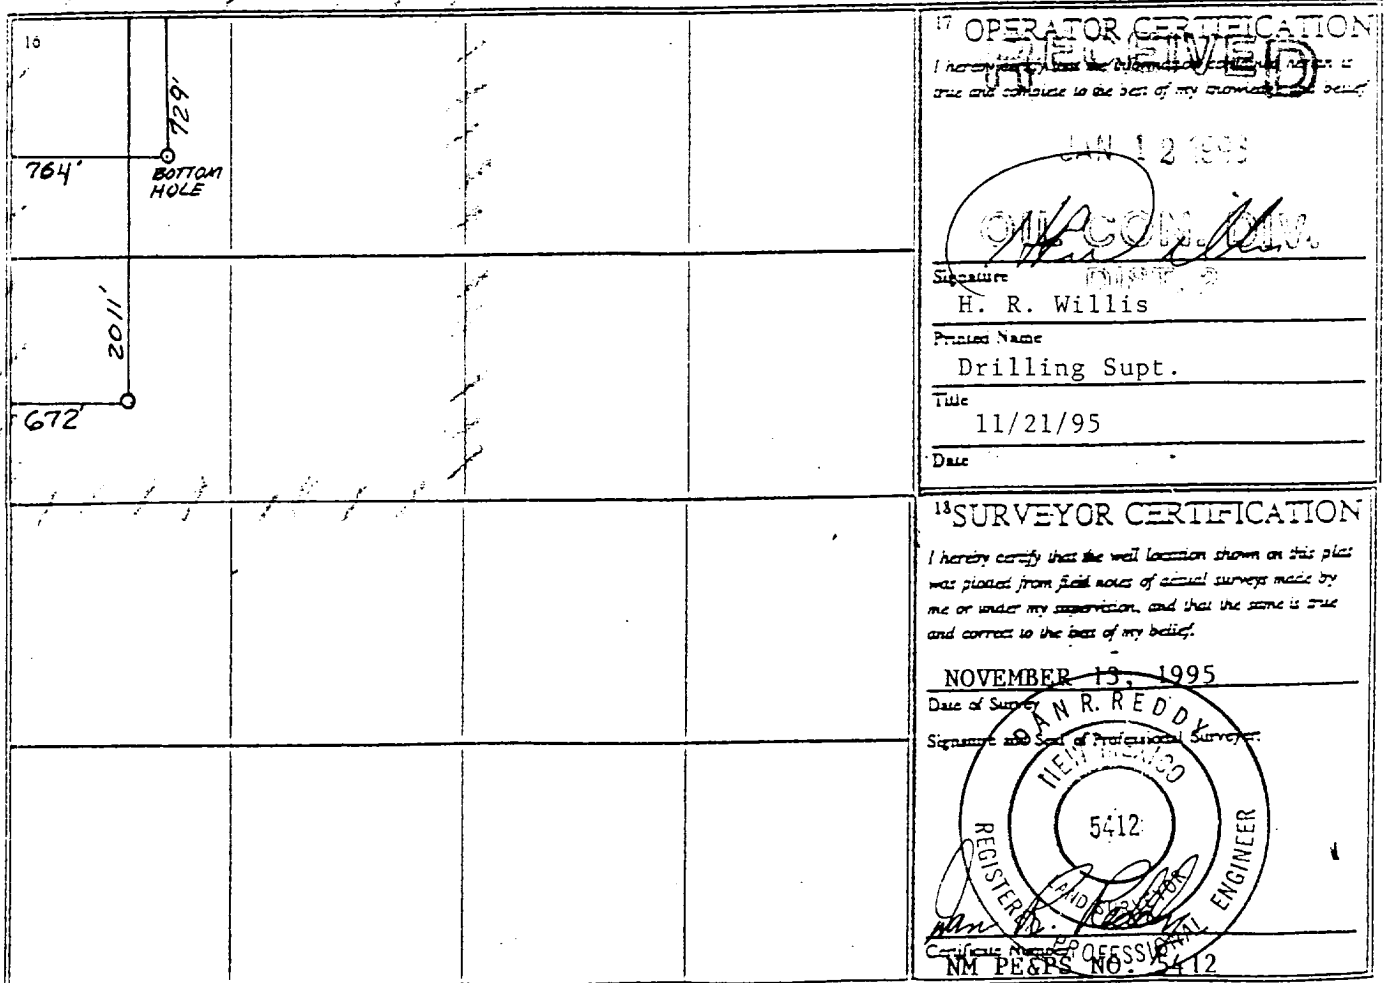 16
729'
764'
BOTTOM
HOLE
2011'
672'
17 OPERATOR CERTIFICATION
RECEIVED
I hereby certify that the information contained herein is
true and complete to the best of my knowledge and belief
JAN 12
OIL CON. DIV.
DIST. 2
Signature
H. R. Willis
Printed Name
Drilling Supt.
Title
11/21/95
Date
18 SURVEYOR CERTIFICATION
I hereby certify that the well location shown on this plat
was plotted from field notes of actual surveys made by
me or under my supervision, and that the same is true
and correct to the best of my belief.
NOVEMBER 13, 1995
Date of Survey
Signature and Seal of Professional Surveyor:
DAN R. REDDY
NEW MEXICO
5412
LAND SURVEYOR
REGISTERED PROFESSIONAL ENGINEER
Dan R. Reddy
Certificate Number
NM PE&PS NO. 5412